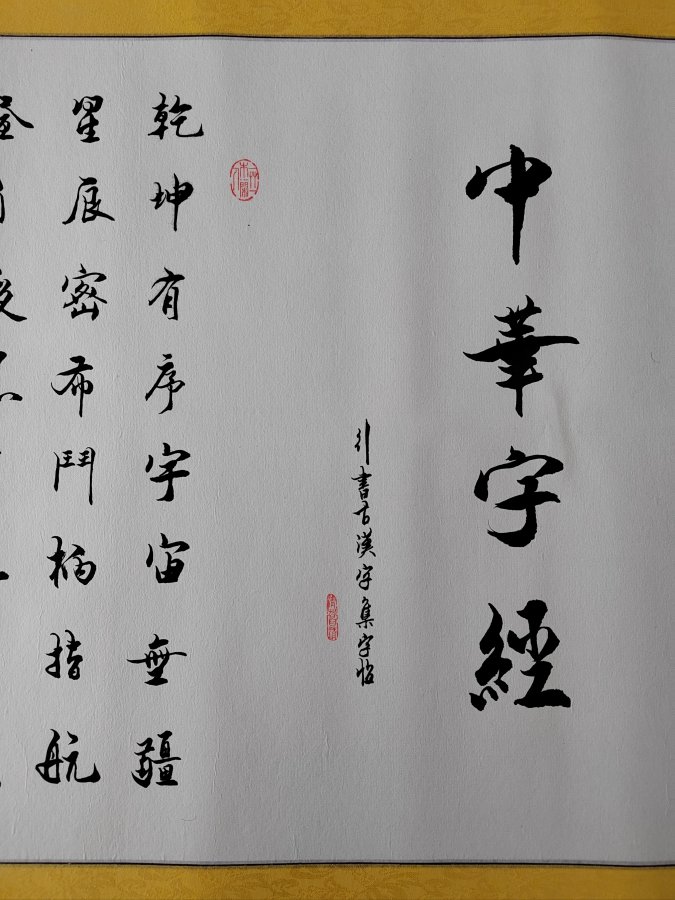 中華字經
行書古漢字集字帖
乾坤有序宇宙無疆
星辰密布鬥柄指航